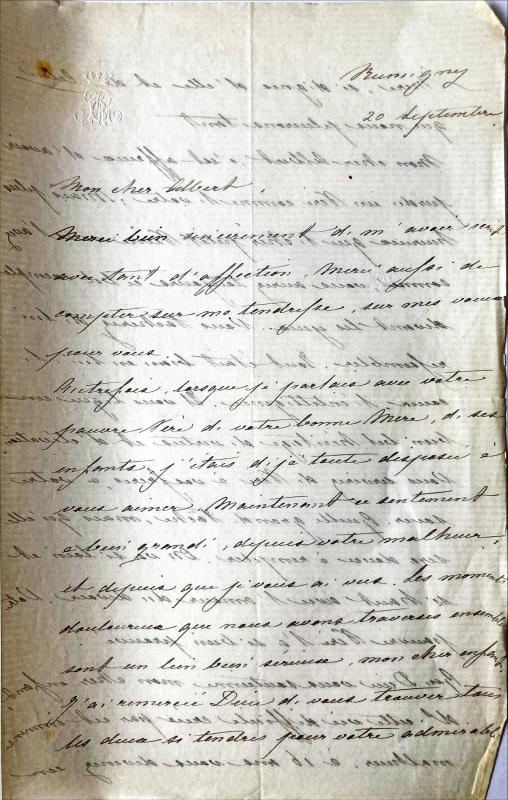 Rumigny
20 Septembre
Mon cher Albert,
Merci bien sincèrement de m'avoir écrit
avec tant d'affection. Merci aussi de
compter sur ma tendresse, sur mes vœux
pour vous.
Autrefois, lorsque je parlais avec votre
pauvre Père de votre bonne Mère, de ses
enfants, j'étais déjà toute disposée à
vous aimer. Maintenant ce sentiment
a bien grandi, depuis votre malheur,
et depuis que je vous ai vus. Les moments
douloureux que nous avons traversés ensemble
sont un lien bien sérieux, mon cher enfant.
J'ai remercié Dieu de vous trouver tous
les deux si tendres pour votre admirable